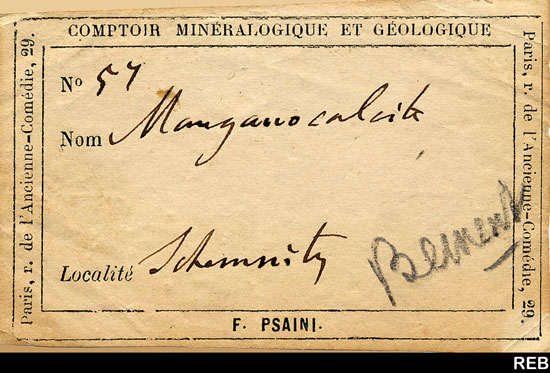 COMPTOIR MINÉRALOGIQUE ET GÉOLOGIQUE
Paris, r. de l'Ancienne-Comédie, 29.
Nº 57
Nom Manganocalcite
Localité Schemnitz
Bement
F. PSAINI.
Paris, r. de l'Ancienne-Comédie, 29.
REB